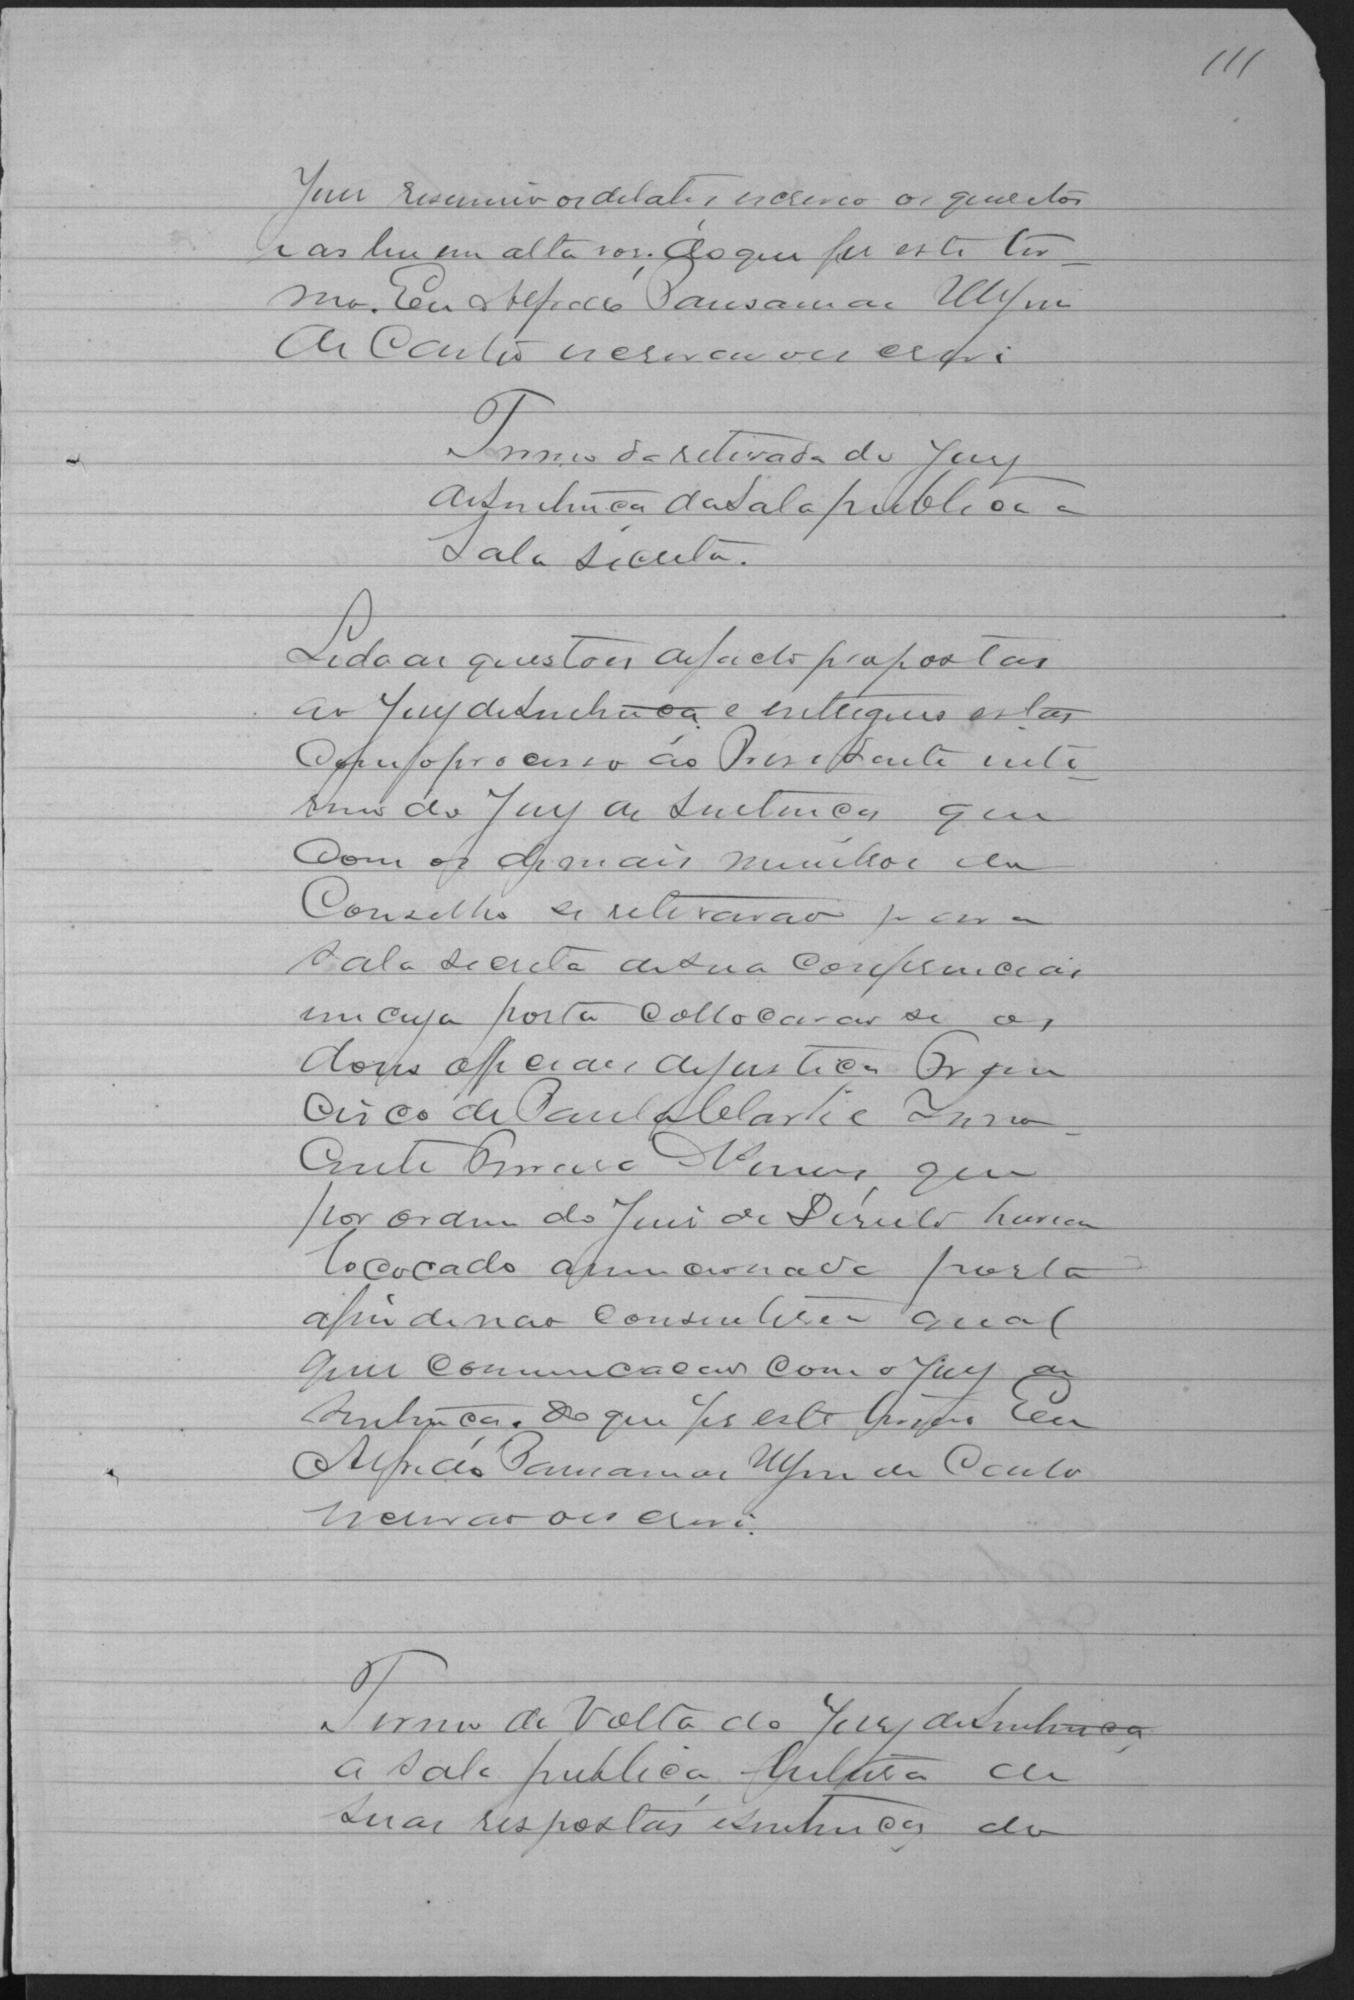 111
Juis resumio os debates escreveo os quesitos
e as leu em alta vos; do que fis este ter-
mo. Eu Alfredo
de Castro escrivão os escrvi
Termo da retirada do Jury
de Sentença da Sala publica a
Sala secreta.
Lida as questões de facto propostas
ao Jury de Sentença e entregues estas
com o processo ao Presidente inte-
rino do Jury de Sentença que
com os demais membros do
Conselho se retirarão para
sala secreta de sua conferencias
em cuja porta collocarão se os
dous officiaes de justiça Fran
cisco de Paula e Inno-
cente Nunes, que
por ordem do Juis de Direito havia
lococado a mencionada porta
afim de não consentirem qual
quer comunicacão com o Jury de
Sentença. do que fis este termo Eu
Alfredo de Castro
escrivão os escrvi.
Termo de Volta do Jury de Sentença
a sala publica, leitura de
suas respostas e sentença do